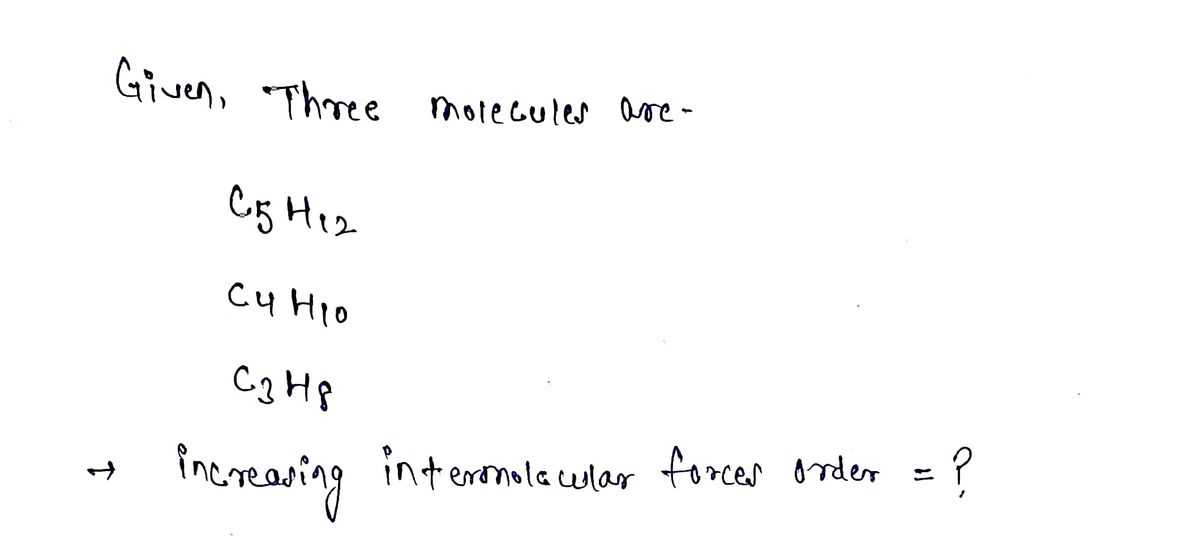 Given, Three molecules are-
C5 H12
C4 H10
C3 H8
→ increasing intermolecular forces order = ?